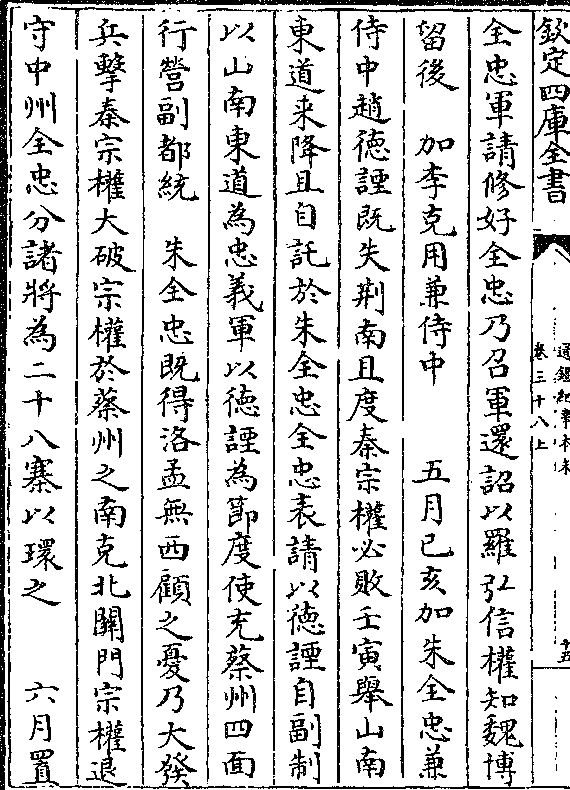 欽定四庫全書
通鑑紀事本末
卷三十八上
十五
全忠軍請修好全忠乃召軍還詔以羅弘信權知魏博
留後　加李克用兼侍中　　五月己亥加朱全忠兼
侍中趙德諲既失荆南且度秦宗權必敗壬寅舉山南
東道来降且自託於朱全忠全忠表請以德諲自副制
以山南東道為忠義軍以德諲為節度使充蔡州四面
行營副都統　朱全忠既得洛孟無西顧之憂乃大發
兵擊秦宗權大破宗權於蔡州之南克北關門宗權退
守中州全忠分諸將為二十八寨以環之　　六月置